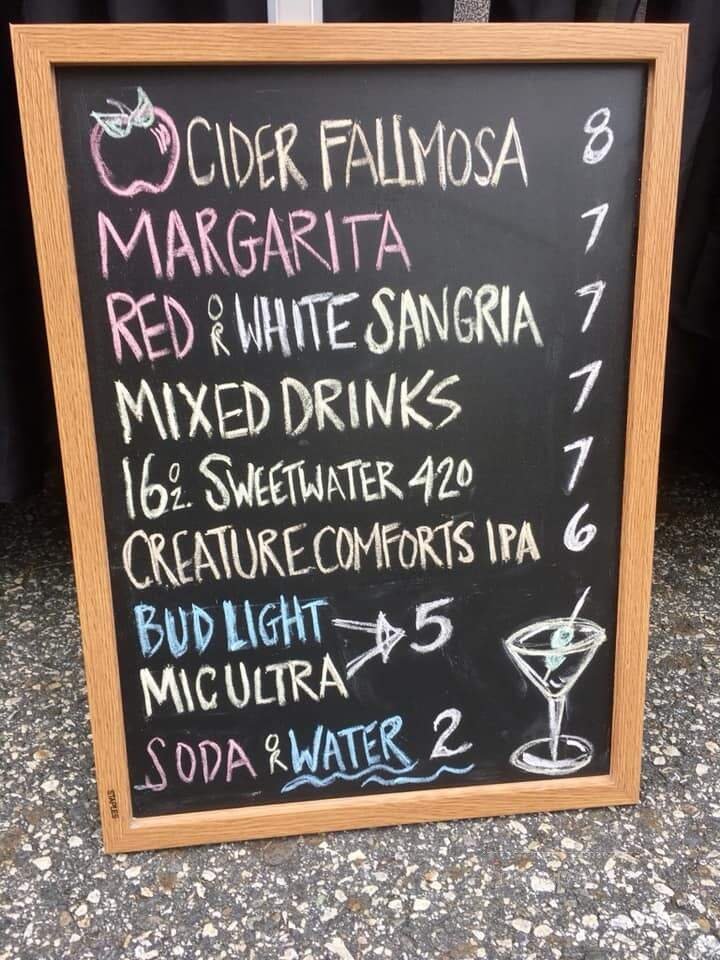 CIDER FALLMOSA 8
MARGARITA 7
RED OR WHITE SANGRIA 7
MIXED DRINKS 7
16 oz. SWEETWATER 420 7
CREATURE COMFORTS IPA 6
BUD LIGHT 5
MIC ULTRA
SODA OR WATER 2
STAPLES